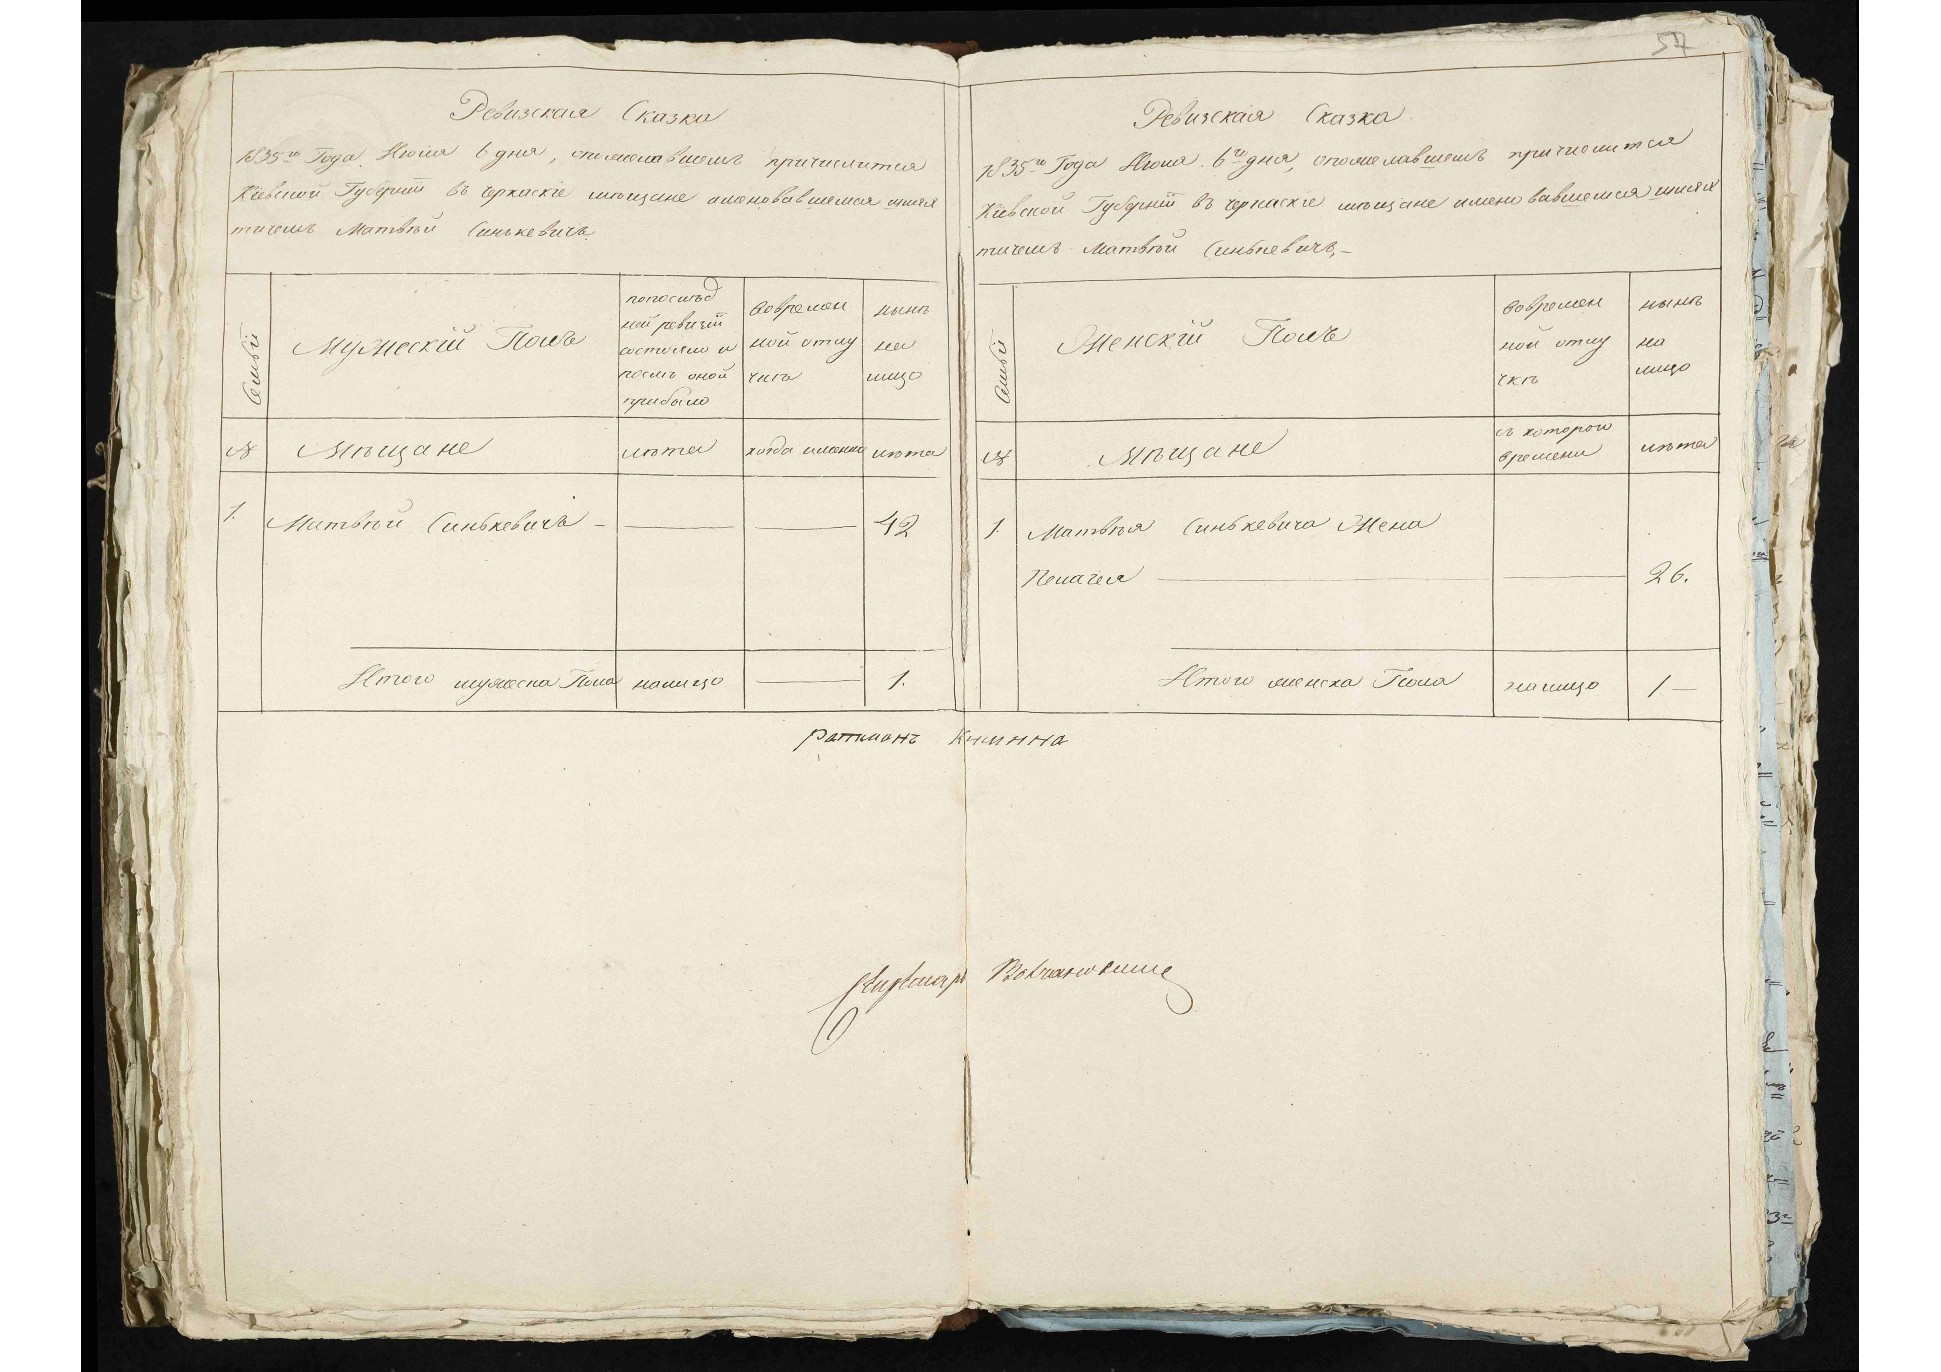 57
Ревизская Сказка
1835го Года Июня 6 дня, о пожелавшемъ причислится
Кіевской Губерніи въ Черкаскіе мѣщане именовавшемся шлях
тичемъ Матвѣй Синькевичъ
Семьи
Мужескій Полъ
попослѣд
ней ревизіи
состояло и
послѣ оной
прибыло
вовремен
ной отлу
чкѣ
нынѣ
на
лицо
№
Мѣщане
лѣта
когда именно
лѣта
1.
Матвѣй Синькевичъ -
42
Итого мужеска Пола налицо
1.
Ревизская Сказка
1835го Года Июня 6го дня, о пожелавшемъ причислится
Кіевской Губерніи въ Черкаскіе мѣщане именовавшемся шлях
тичемъ Матвѣй Синькевичъ, -
Семьи
Женскій Полъ
вовремен
ной отлу
чкѣ
нынѣ
на
лицо
№
Мѣщане
съ которого
времени
лѣта
1.
Матвѣя Синькевича Жена
Пелагея
26.
Итого женска Пола налицо
1 -
Ратманъ
Секретарь